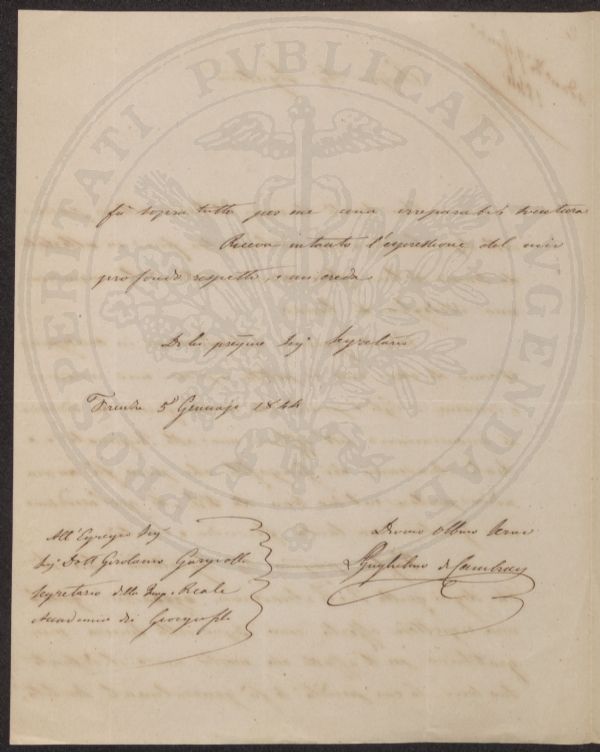 PROSPERITATI PVBLICAE AVGENDAE
fù sopra tutto per me una irreparabile sventura
Riceva intanto l'espressione del mio
profondo rispetto, e mi creda
Di lei Sigr Segretario
Firenze 5 Gennajo 1844
All' Egregio Sigr
Sigr Dott Girolamo Gargiolli
Segretario della Imp. e Reale
Accademia dei Georgofili
Devmo Obbmo Serve
Guglielmo de Cambray